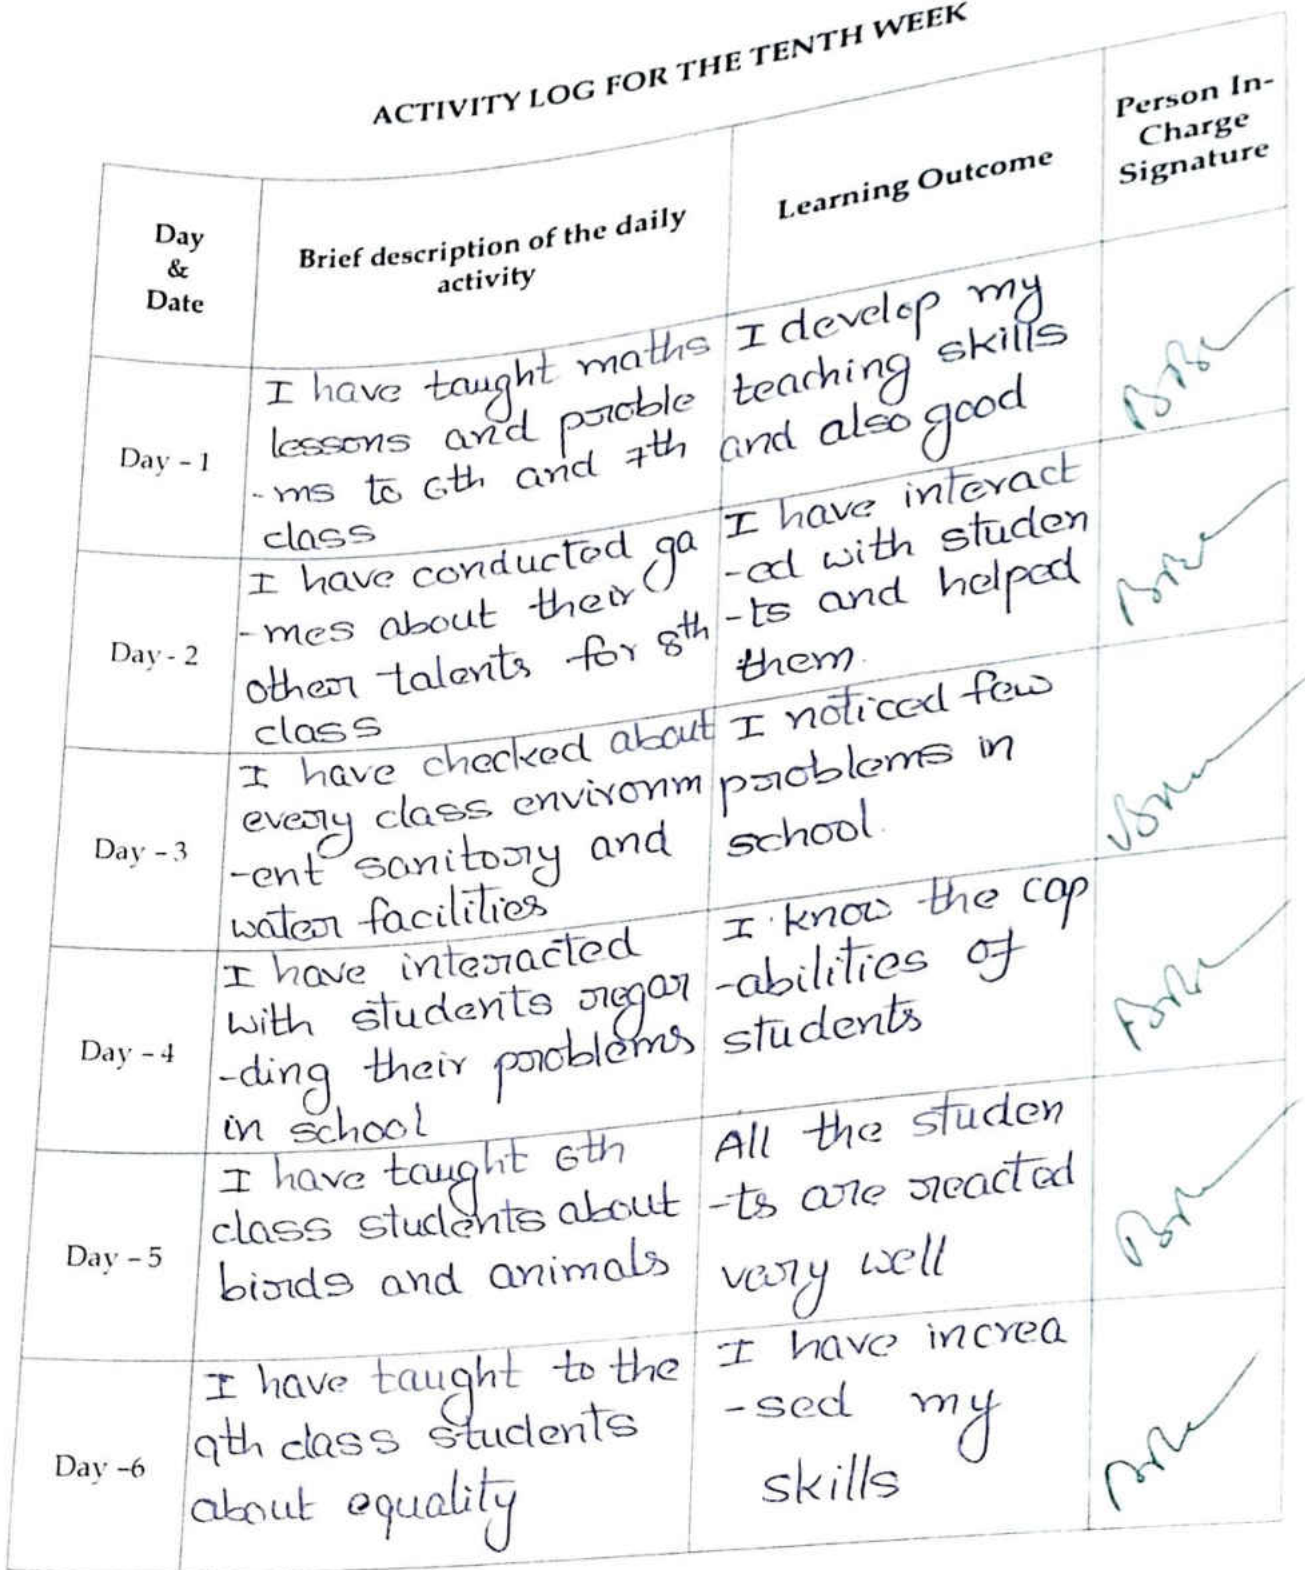 ACTIVITY LOG FOR THE TENTH WEEK
Day
&
Date
Brief description of the daily
activity
Learning Outcome
Person In-
Charge
Signature
Day - 1
I have taught maths
lessons and proble
-ms to 6th and 7th
class
I develop my
teaching skills
and also good
Day - 2
I have conducted ga
-mes about their
other talents for 8th
class
I have interact
-ed with studen
-ts and helped
them.
Day - 3
I have checked about
every class environm
-ent sanitory and
water facilities
I noticed few
problems in
school.
Day - 4
I have interacted
with students regar
-ding their problems
in school
I know the cap
-abilities of
students
Day - 5
I have taught 6th
class students about
birds and animals
All the studen
-ts are reacted
very well
Day -6
I have taught to the
9th class students
about equality
I have increa
-sed my
skills